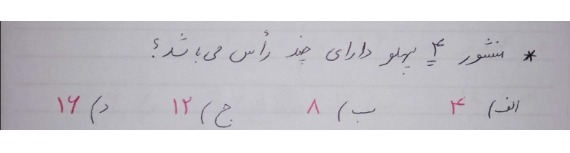 * منشور ۴ پهلو دارای چند رأس می باشد؟
الف) ۴ ب) ۸ ج) ۱۲ د) ۱۶